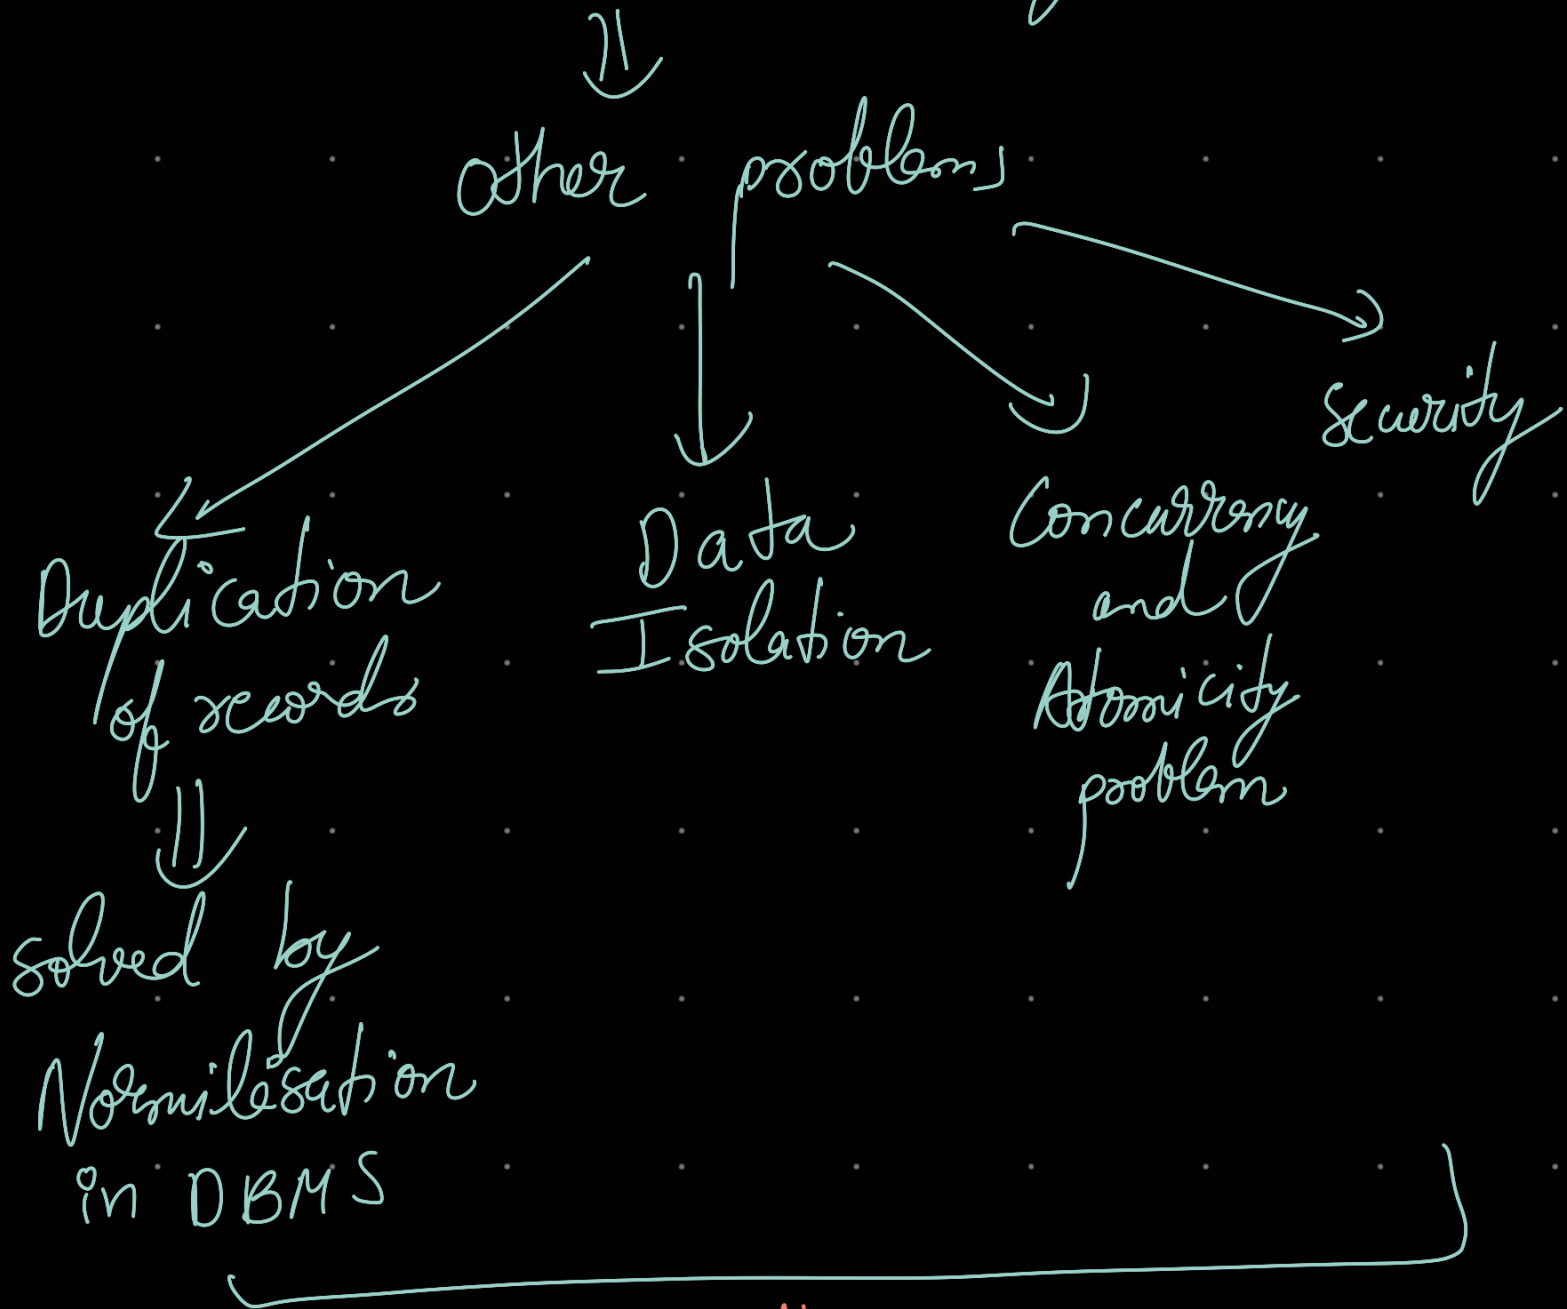 Other problems
Security
Duplication
of records
Data
Isolation
Concurrency
and
Atomicity
problem
solved by
Normilisation
in DBMS